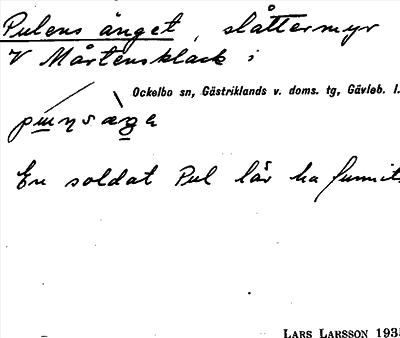 Pulens änget, slåttermyr
V Mårtensklack i
Ockelbo sn, Gästriklands v. doms. tg, Gävleb. l.
En soldat Pul lär ha funnits
LARS LARSSON 1935